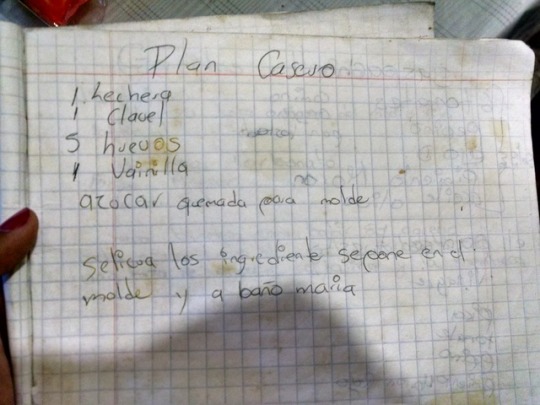 Plan Casero
1 Lechera
1 Clavel
5 huevos
1 Vainilla
azocar quemada para molde
selicua los ingrediente sepone en el
molde y a baño maria